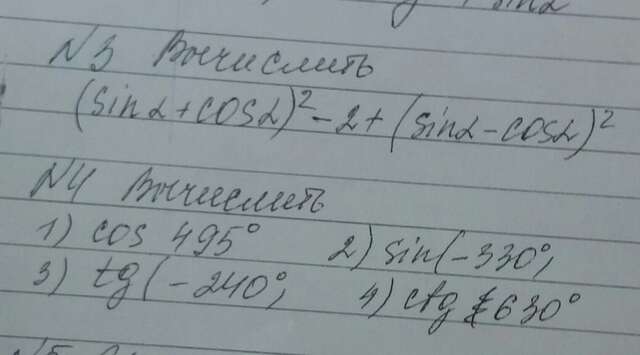 sin α
N3 Вычислить
(sin α + cos α)² - 2 + (sin α - cos α)²
N4 Вычислить
1) cos 495° 2) sin(-330°;
3) tg(-240°; 4) ctg 630°